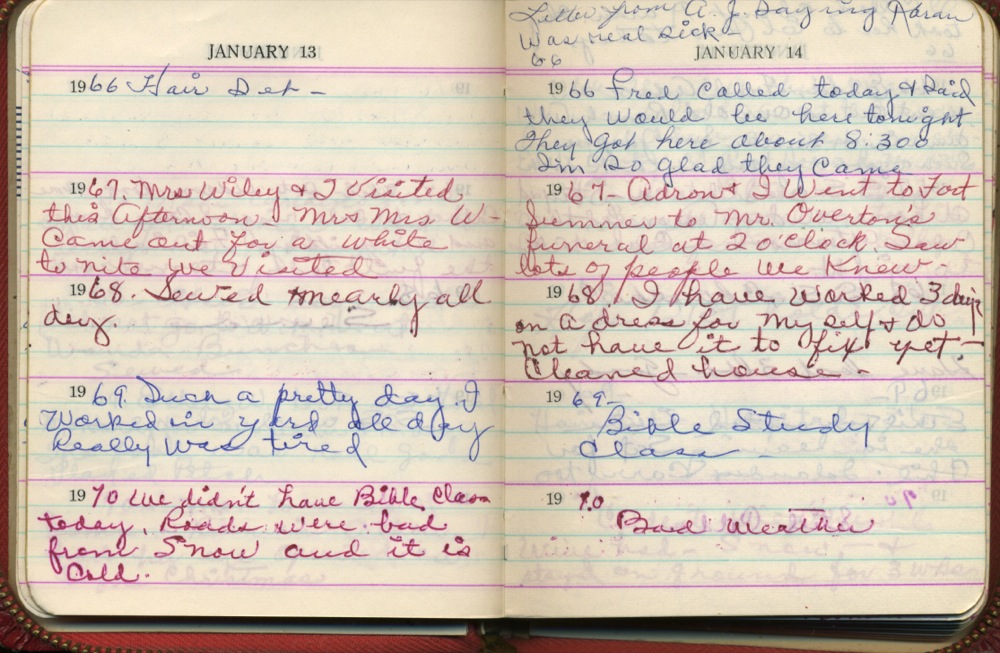 JANUARY 13
1966 Hair Set -
1967. Mrs Wiley & I Visited
this Afternoon Mrs Mrs W-
Came out for a white
to nite we visited
1968. Sewed nearly all
day.
1969 Such a pretty day. I
Worked in yard all day
Really Was tired
1970 we didn't have Bible Class
today. Roads were bad
from Snow and it is
Cold.
Letter from A. J. Saying
Was real sick
66
JANUARY 14
1966 Fred Called today & Said
they Would be here tonight
They got here about 8:300
I'm So glad they Came
1967- & I Went to Fort
Sumner to Mr. Overton's
funeral at 2 o'clock. Saw
lots of people we Knew-
1968. I have Worked 3 days
on a dress for my self & do
not have it to fix yet-
Cleaned house-
1969-
Bible Study
Class
1970
Bad Weather